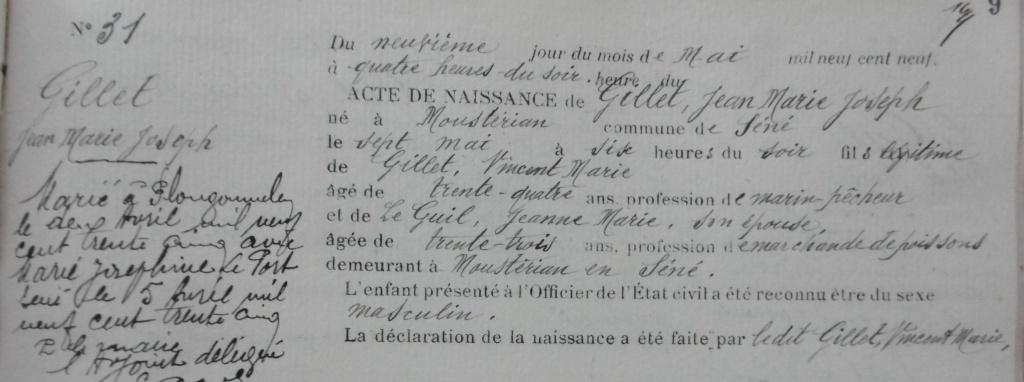 19
9
N° 31
Gillet
Jean Marie Joseph
Marié à Plougoumelen
le deux Avril mil neuf
cent trente cinq avec
Marie Joséphine Le Port
Séné le 5 Avril mil
neuf cent trente cinq
P. le maire
l'Adjoint délégué
Du neuvième jour du mois de Mai mil neuf cent neuf.
à quatre heures du soir. heure du
ACTE DE NAISSANCE de Gillet, Jean Marie Joseph
né à Moustérian commune de Séné
le sept mai à six heures du soir fils légitime
de Gillet, Vincent Marie
âgé de trente-quatre ans, profession de marin-pêcheur
et de Le Guil, Jeanne Marie, son épouse,
âgée de trente-trois ans, profession de marchande de poissons
demeurant à Moustérian en Séné.
L'enfant présenté à l'Officier de l'État civil a été reconnu être du sexe
masculin.
La déclaration de la naissance a été faite par ledit Gillet, Vincent Marie,